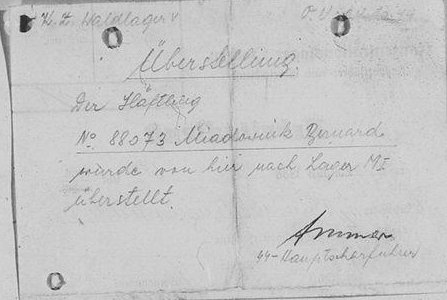 K. Z. Waldlager V
Überstellung
Der Häftling
No 88073 Miadownik Bernard
wurde von hier nach Lager MI
überstellt.
SS-Hauptscharführer